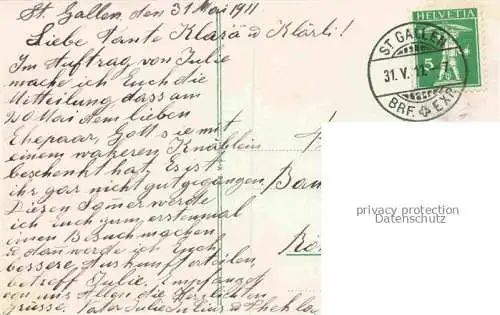 St. Gallen, den 31 Mai 1911
Liebe Tante Klara u Klärli!
Im Auftrag von Julie
mache ich Euch die
Mitteilung dass am
20 Mai dem lieben
Ehepaar, Gott sie mit
einem wakeren Knäblein
beschenkt hat, Es ist
ihr gar nicht gut gegangen,
Diesen Somer werde
ich Euch zum erstenmal
einen Besuch machen,
u dann werde ich Euch
bessere Auskunft erteilen,
betreff Julie. Empfangt
von uns Allen die Herzlichsten
Grüsse. Vater Julie Julius u
HELVETIA
5
ST GALLEN
31. V. 11.
BRF. EXP.
privacy protection
Datenschutz